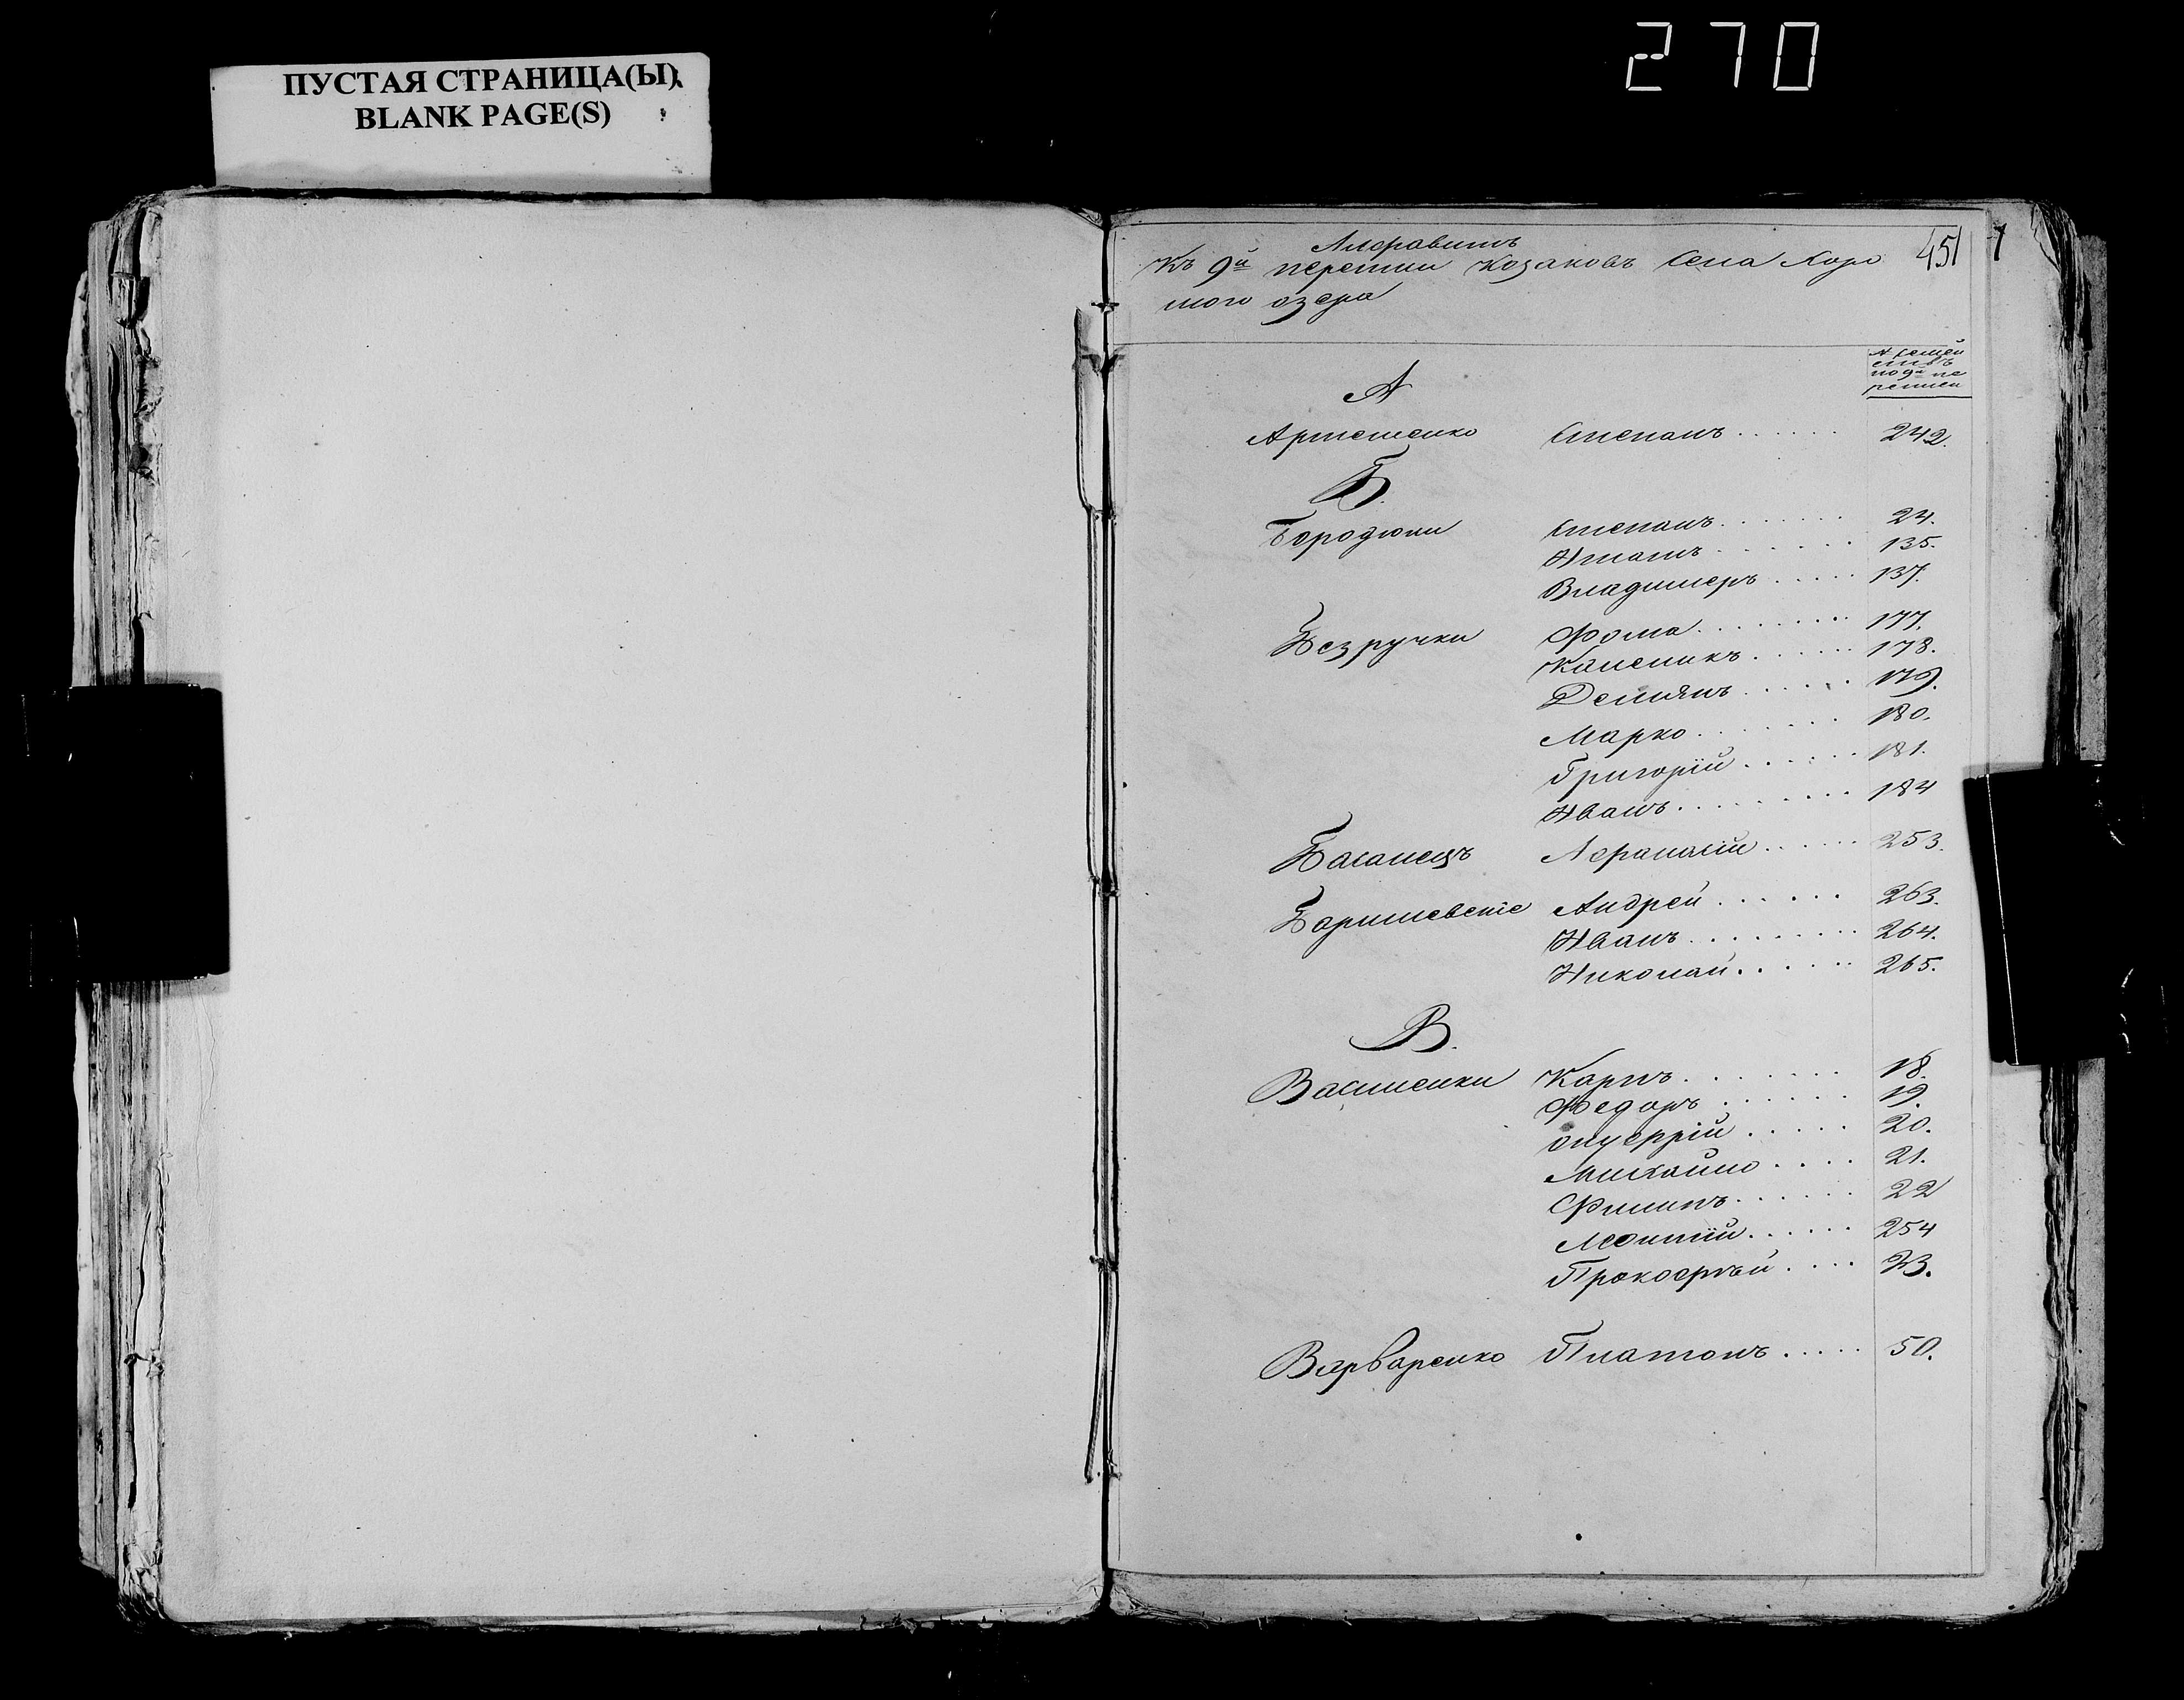 270
ПУСТАЯ СТРАНИЦА(Ы)
BLANK PAGE(S)
451
Алфавитъ
Къ 9й переписи козаковъ села Хоро
шого озера
№ семей
ствъ
по 9й пе
реписи
А
Артеменко Степанъ 242.
Б.
Бородюки Степанъ 24.
Игнатъ 135.
Владимеръ 137.
Безручки Фома 177.
Каленикъ 178.
Демьянъ 179.
Марко 180.
Григорій 181.
Иванъ 184
Басанецъ Афанасій 253.
Боришевскіе Андрей 263.
Иванъ 264.
Николай 265.
В.
Василенки Карпъ 18.
Федоръ 19.
Онуфрій 20.
Михайло 21.
Филипъ 22
Леонтій 254
Прокофій 23.
Варваренко Платонъ 50.